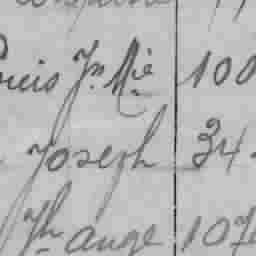 ouis Jn Mie 100
Joseph 34
Jh ange 107